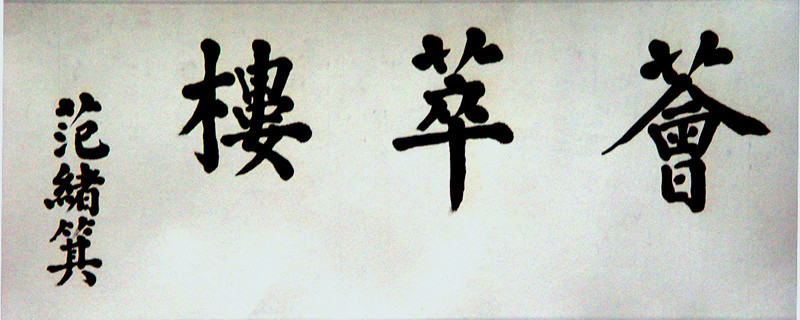 薈萃樓
范緒箕